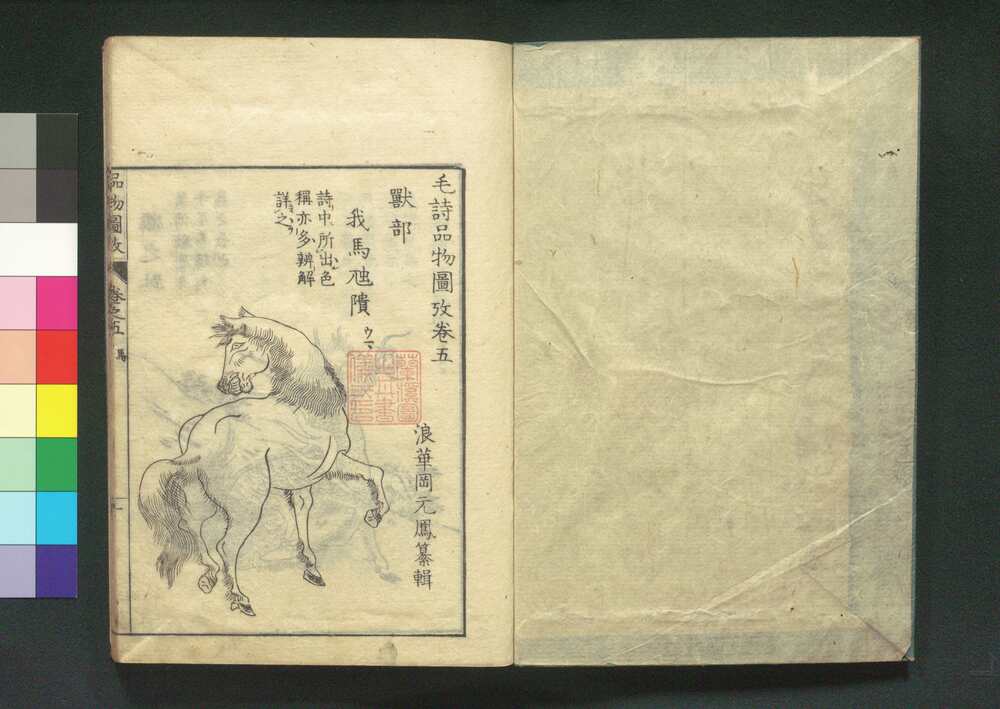 毛詩品物圖攷卷五
浪華岡元鳳纂輯
獸部
我馬虺隤
ウマ
詩中所出色
稱亦多辨解
詳之
品物圖攷
卷之五
馬